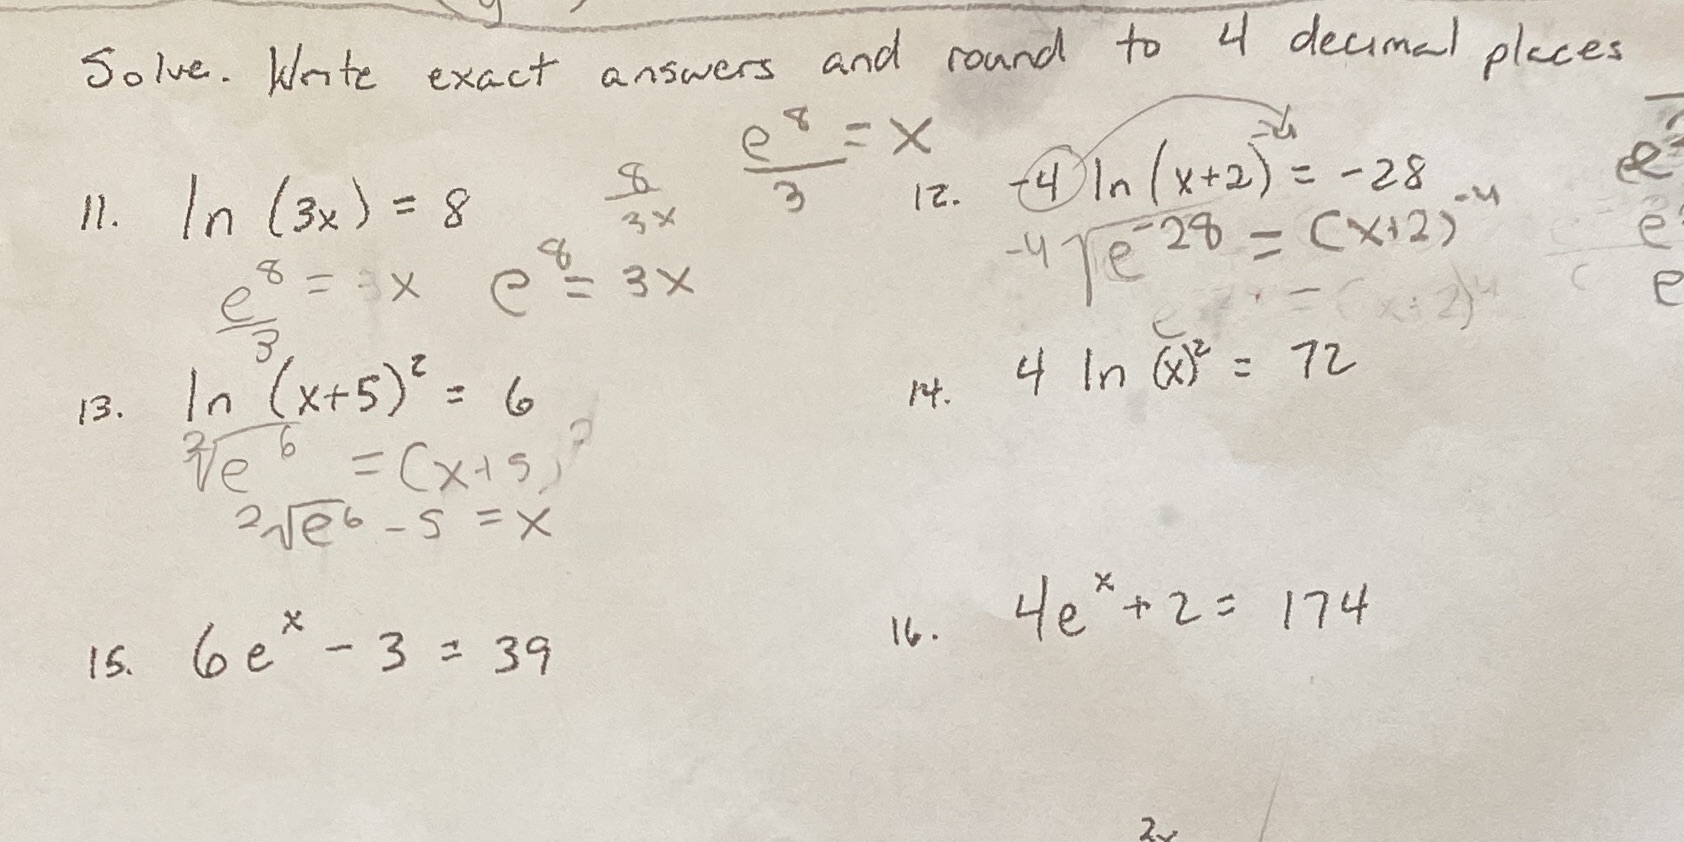 Solve. Write exact answers and round to 4 decimal places
11. ln (3x) = 8
8/3x
e^8/3 = x
e^8/3 = x
e^8 = 3x
12. -4 ln (x+2)^-4 = -28
-4√e^-28 = (x+2)^-4
= (x+2)^4
13. ln (x+5)^2 = 6
2√e^6 = (x+5)^2
2√e^6 - 5 = x
14. 4 ln (x)^2 = 72
15. 6e^x - 3 = 39
16. 4e^x + 2 = 174
e
e
e